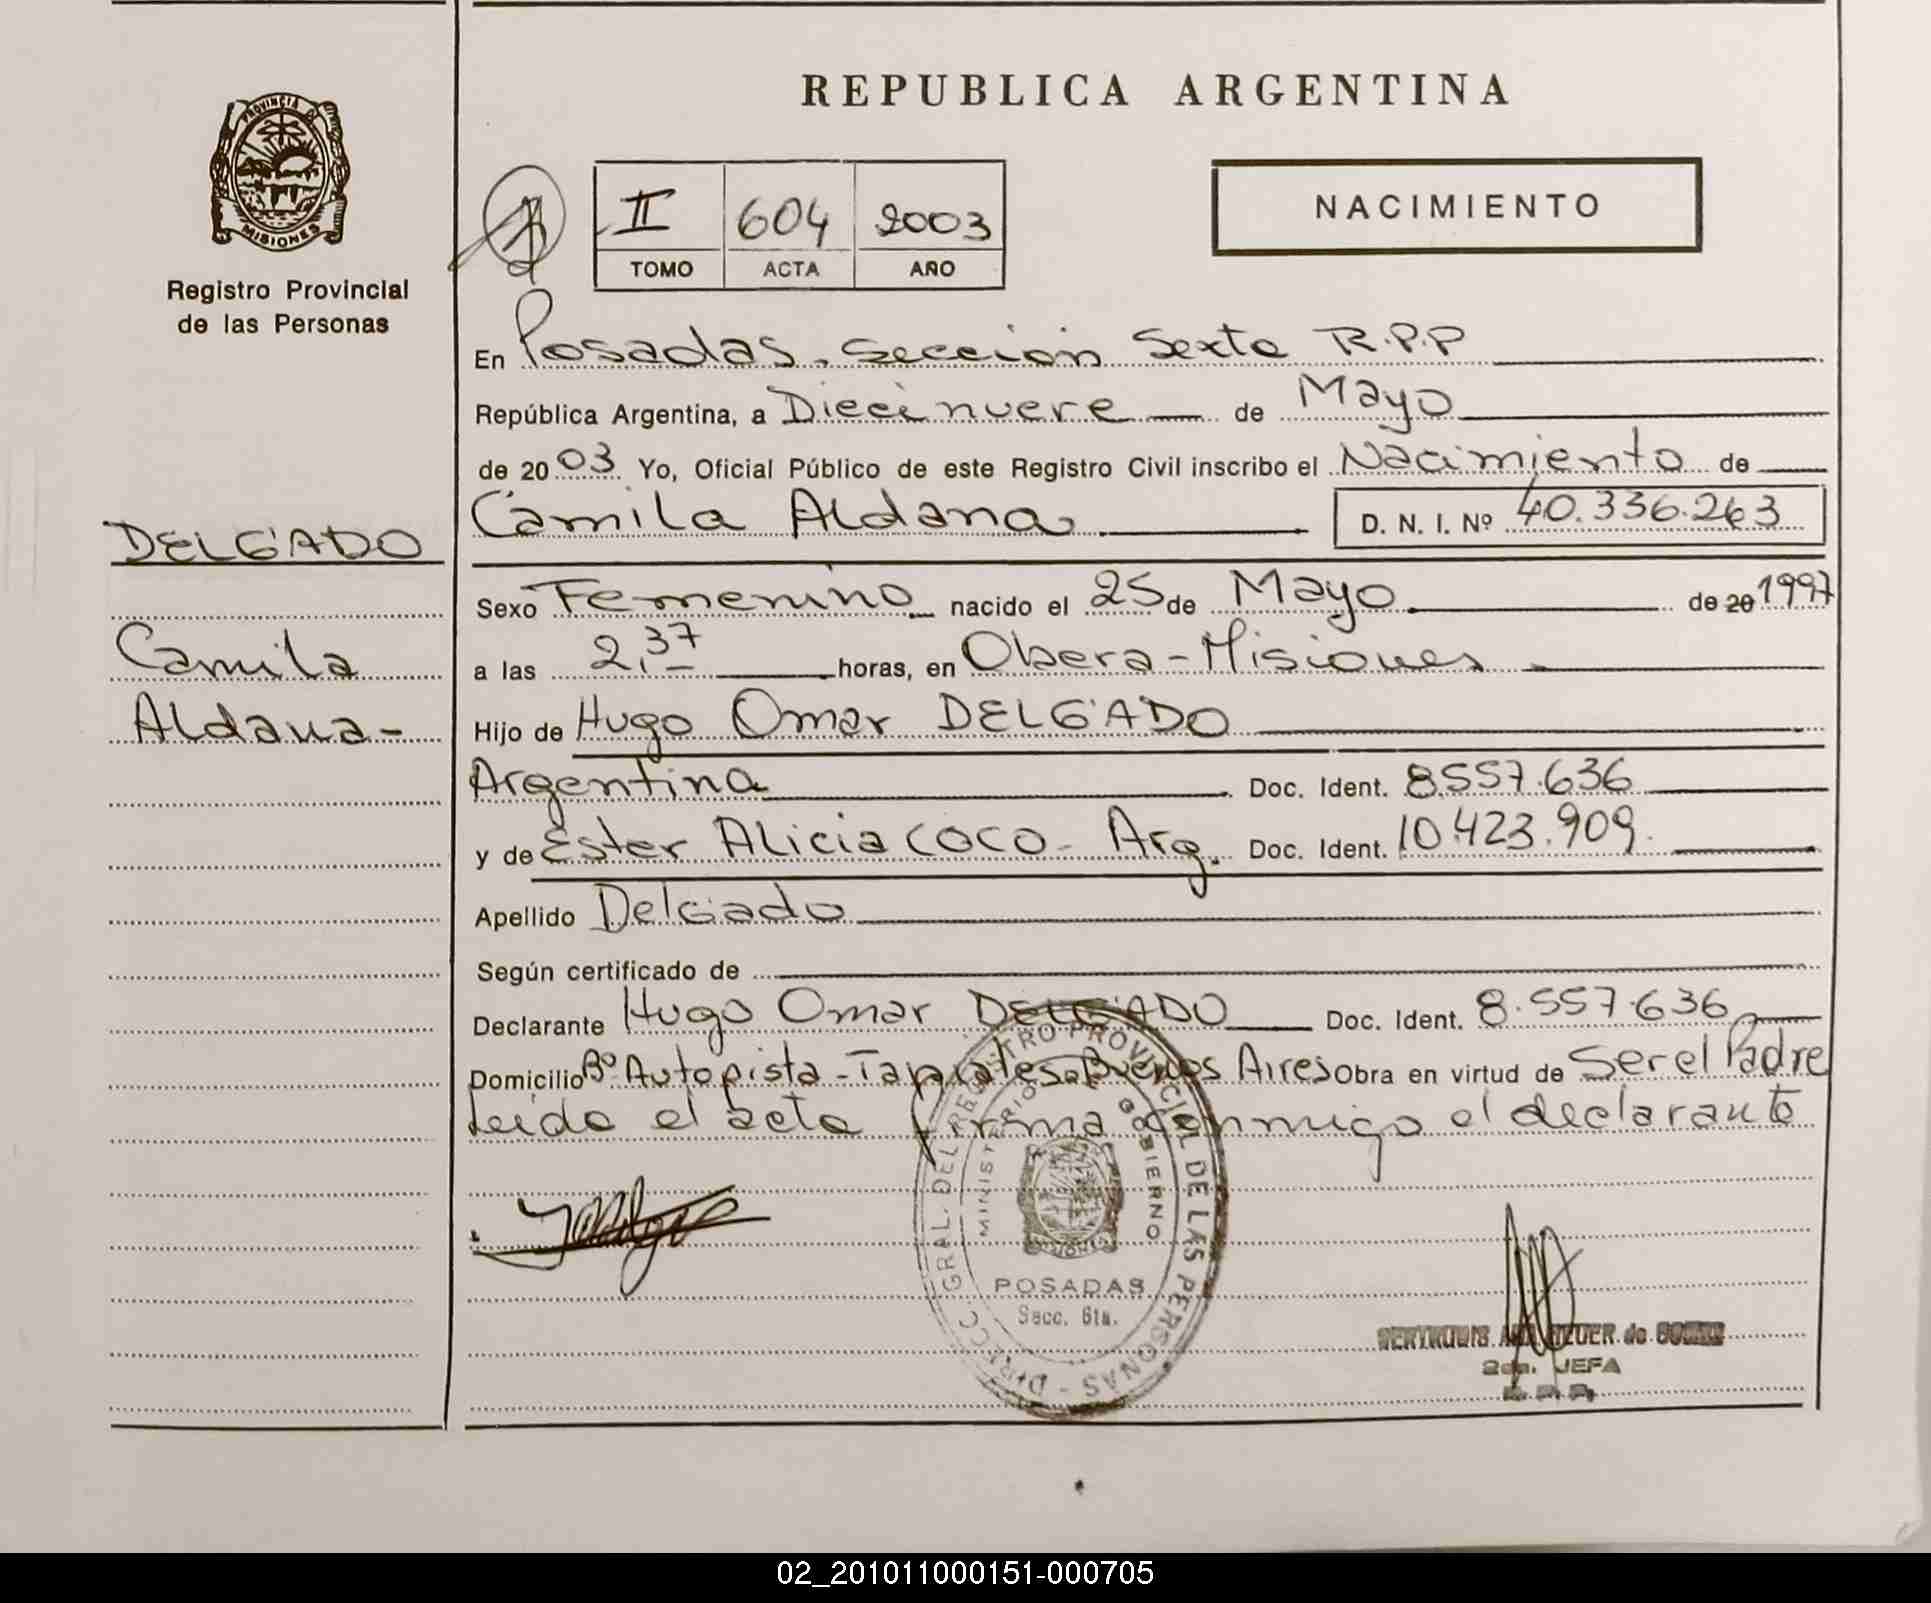 REPUBLICA ARGENTINA
PROVINCIA DE
MISIONES
Registro Provincial
de las Personas
II 604 2003
TOMO ACTA AÑO
NACIMIENTO
En Posadas, Sección Sexta R.P.P
República Argentina, a Diecinueve de Mayo
de 2003 Yo, Oficial Público de este Registro Civil inscribo el Nacimiento de
Camila Aldana D. N. I. Nº 40.336.263
DELGADO
Camila
Aldana-
Sexo Femenino nacido el 25 de Mayo de 20 1997
a las 2,37 horas, en Obera-Misiones
Hijo de Hugo Omar DELGADO
Argentina Doc. Ident. 8.557.636
y de Ester Alicia COCO- Arg. Doc. Ident. 10.423.909.
Apellido Delgado
Según certificado de
Declarante Hugo Omar DELGADO Doc. Ident. 8.557.636
Domicilio Bº Autopista-Tapiales-Buenos Aires Obra en virtud de Ser el Padre
Leida el acta firma conmigo el declarante
DIRECC. GRAL. DEL REGISTRO PROVINCIAL DE LAS PERSONAS -
MINISTERIO DE GOBIERNO
MISIONES
POSADAS
Secc. 6ta.
de
2da. JEFA
R. P. P.
02_201011000151-000705